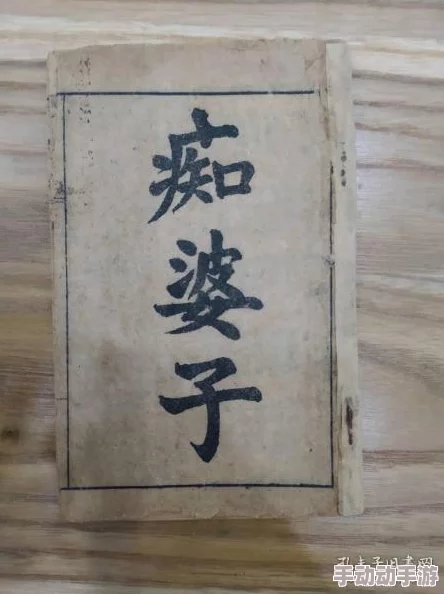 痴婆子
孔夫子旧书网
手动动手游